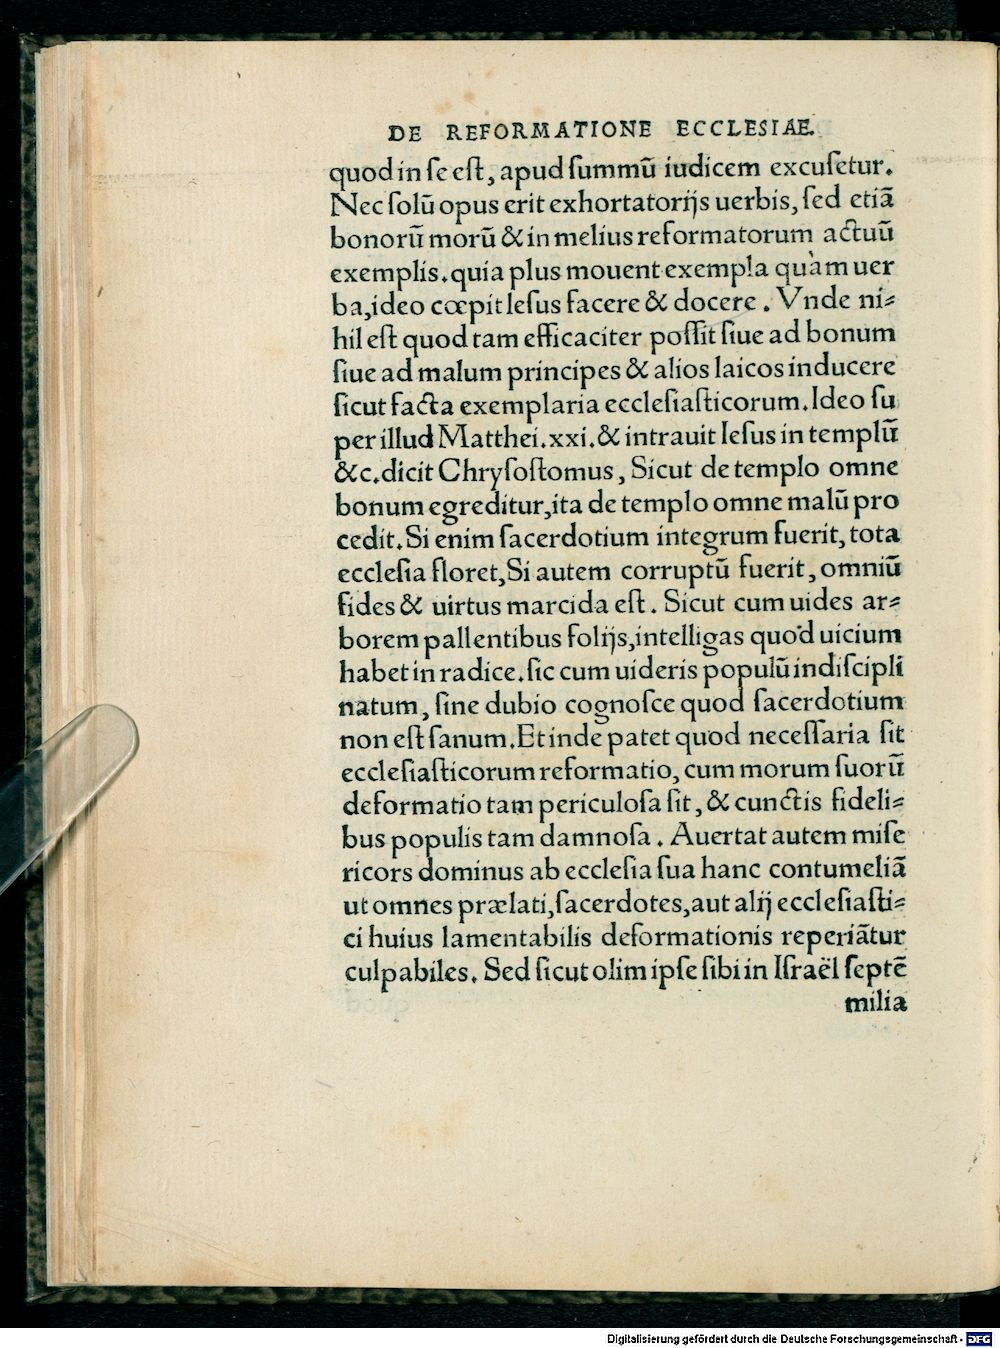 DE REFORMATIONE ECCLESIAE.
quod in ſe eſt, apud ſummū iudicem excuſetur.
Nec ſolū opus erit exhortatorijs uerbis, ſed etiā
bonorū morū & in melius reformatorum actuū
exemplis. quia plus mouent exempla quàm uer
ba, ideo cœpit Ieſus facere & docere. Vnde ni⸗
hil eſt quod tam efficaciter poſſit ſiue ad bonum
ſiue ad malum principes & alios laicos inducere
ſicut facta exemplaria eccleſiaſticorum. Ideo ſu
per illud Matthei. xxi. & intrauit Ieſus in templū
&c. dicit Chryſoſtomus, Sicut de templo omne
bonum egreditur, ita de templo omne malū pro
cedit. Si enim ſacerdotium integrum fuerit, tota
eccleſia floret, Si autem corruptū fuerit, omniū
fides & uirtus marcida eſt. Sicut cum uides ar⸗
borem pallentibus folijs, intelligas quòd uicium
habet in radice. ſic cum uideris populū indiſcipli
natum, ſine dubio cognoſce quod ſacerdotium
non eſt ſanum. Et inde patet quod neceſſaria ſit
eccleſiaſticorum reformatio, cum morum ſuorū
deformatio tam periculoſa ſit, & cunctis fideli⸗
bus populis tam damnoſa. Auertat autem miſe
ricors dominus ab eccleſia ſua hanc contumeliā
ut omnes prælati, ſacerdotes, aut alij eccleſiaſti⸗
ci huius lamentabilis deformationis reperiātur
culpabiles. Sed ſicut olim ipſe ſibi in Iſraël ſeptē
milia
Digitalisierung gefördert durch die Deutsche Forschungsgemeinschaft - DFG